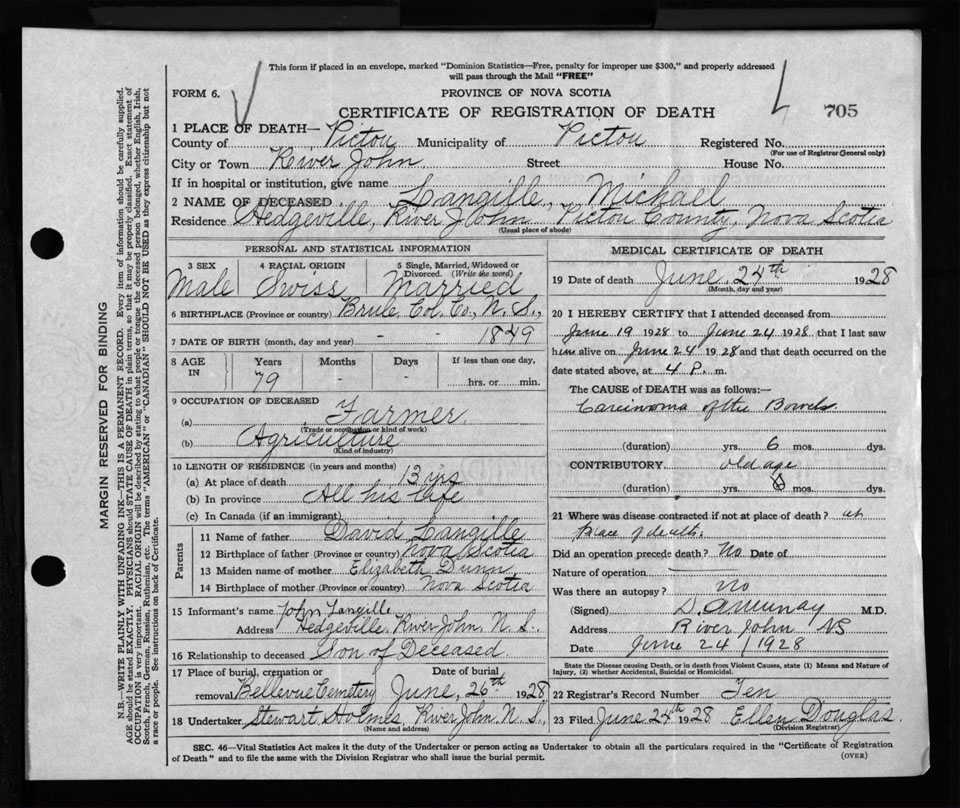 This form if placed in an envelope, marked "Dominion Statistics—Free, penalty for improper use $300," and properly addressed
will pass through the Mail "FREE"
FORM 6.
PROVINCE OF NOVA SCOTIA
CERTIFICATE OF REGISTRATION OF DEATH
705
1 PLACE OF DEATH—
County of Pictou Municipality of Pictou Registered No.
(For use of Registrar General only)
City or Town River John Street House No.
If in hospital or institution, give name
2 NAME OF DECEASED Langille, Michael
Residence Hedgeville, River John Pictou County, Nova Scotia
(Usual place of abode)
PERSONAL AND STATISTICAL INFORMATION
3 SEX Male
4 RACIAL ORIGIN Swiss
5 Single, Married, Widowed or Divorced. (Write the word) Married
6 BIRTHPLACE (Province or country) Brule, Col. Co., N. S.,
7 DATE OF BIRTH (month, day and year) - 1849
8 AGE IN Years Months Days If less than one day,
79 - hrs. or min.
9 OCCUPATION OF DECEASED
(a) Farmer.
(Trade or occupation or kind of work)
(b) Agriculture
(Kind of industry)
10 LENGTH OF RESIDENCE (in years and months)
(a) At place of death 13 yrs
(b) In province All his life
(c) In Canada (if an immigrant)
Parents
11 Name of father David Langille
12 Birthplace of father (Province or country) Nova Scotia
13 Maiden name of mother Elizabeth Dunn
14 Birthplace of mother (Province or country) Nova Scotia
15 Informant's name John Langille
Address Hedgeville, River John, N. S.,
16 Relationship to deceased Son of Deceased.
17 Place of burial, cremation or removal Bellevue Cemetery
Date of burial June, 26th 1928
18 Undertaker Stewart Holmes, River John, N. S.,
(Name and address)
MEDICAL CERTIFICATE OF DEATH
19 Date of death June, 24th 1928
(Month, day and year)
20 I HEREBY CERTIFY that I attended deceased from
June 19 1928 to June 24 1928, that I last saw
him alive on June 24 1928 and that death occurred on the
date stated above, at 4 P. m.
The CAUSE of DEATH was as follows:—
Carcinoma of the Bowels.
(duration) yrs. 6 mos. dys.
CONTRIBUTORY old age
(duration) yrs. mos. dys.
21 Where was disease contracted if not at place of death? at
place of death.
Did an operation precede death? No Date of
Nature of operation
Was there an autopsy? no
(Signed) M.D.
Address River John NS
Date June 24 / 1928
State the Disease causing Death, or in death from Violent Causes, state (1) Means and Nature of
Injury, (2) whether Accidental, Suicidal or Homicidal.
22 Registrar's Record Number Ten
23 Filed June 24th 1928 Ellen Douglas.
(Division Registrar)
SEC. 46—Vital Statistics Act makes it the duty of the Undertaker or person acting as Undertaker to obtain all the particulars required in the "Certificate of Registration
of Death" and to file the same with the Division Registrar who shall issue the burial permit.
(OVER)
MARGIN RESERVED FOR BINDING
N.B.—WRITE PLAINLY WITH UNFADING INK—THIS IS A PERMANENT RECORD. Every item of information should be carefully supplied.
AGE should be stated EXACTLY. PHYSICIANS should STATE CAUSE OF DEATH in plain terms, so that it may be properly classified. Exact statement of
OCCUPATION is very important. RACIAL ORIGIN will be described by stating to what people or tongue the deceased person belonged, whether English, Irish,
Scotch, French, German, Russian, Ruthenian, etc. The terms "AMERICAN" or "CANADIAN" SHOULD NOT BE USED as they express citizenship but not
a race or people. See instructions on back of Certificate.